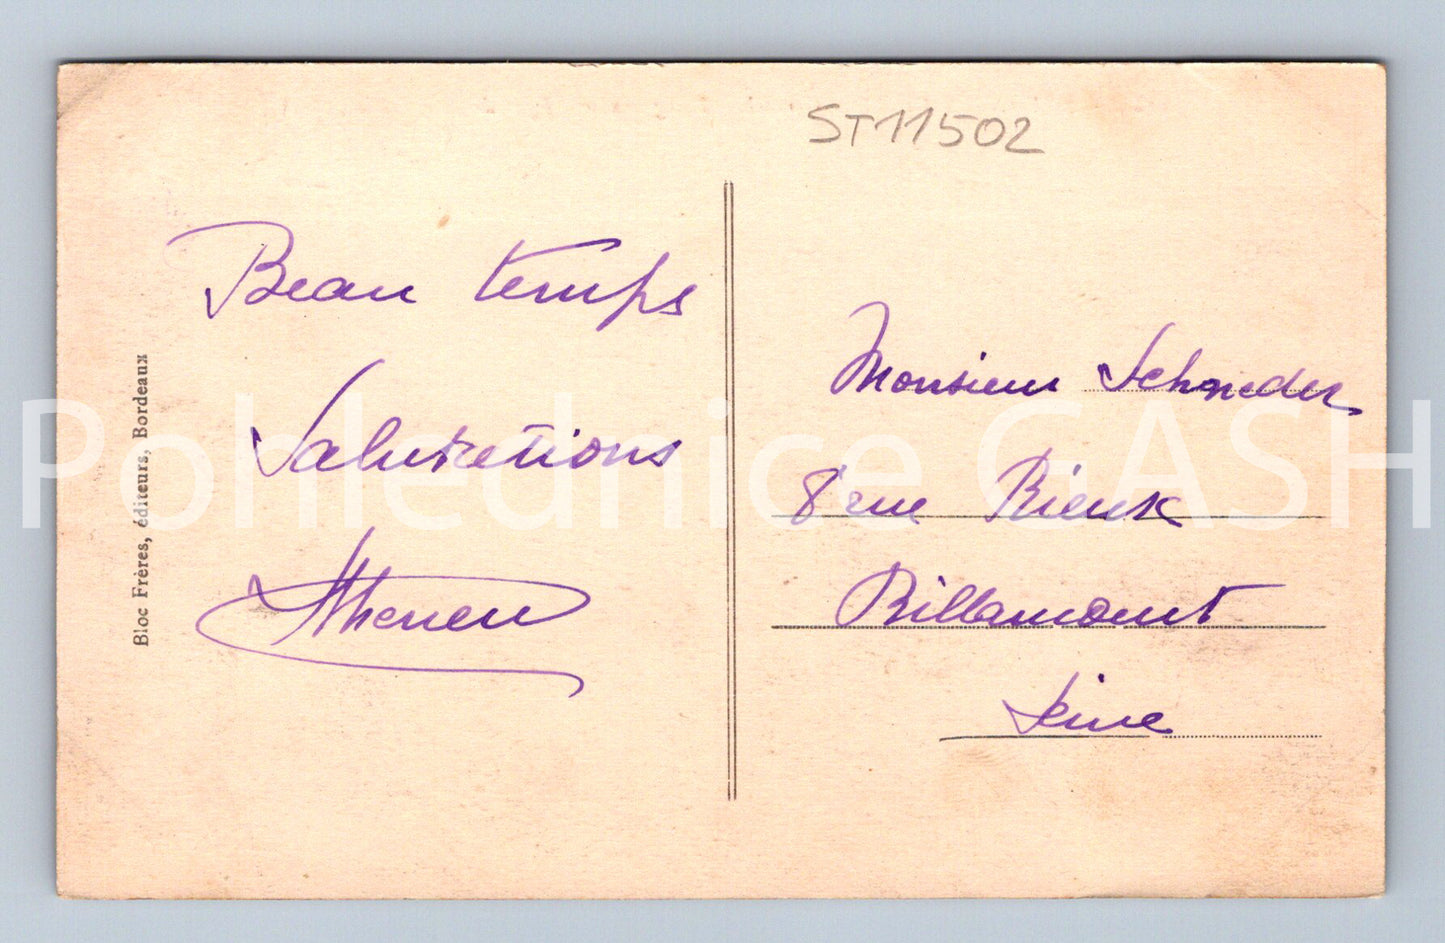 ST11502
Beau temps
Salutations
Bloc Frères, éditeurs, Bordeaux
Monsieur Schneder
8 rue Rieux
Billamcourt
Seine
Pohlednice GASH